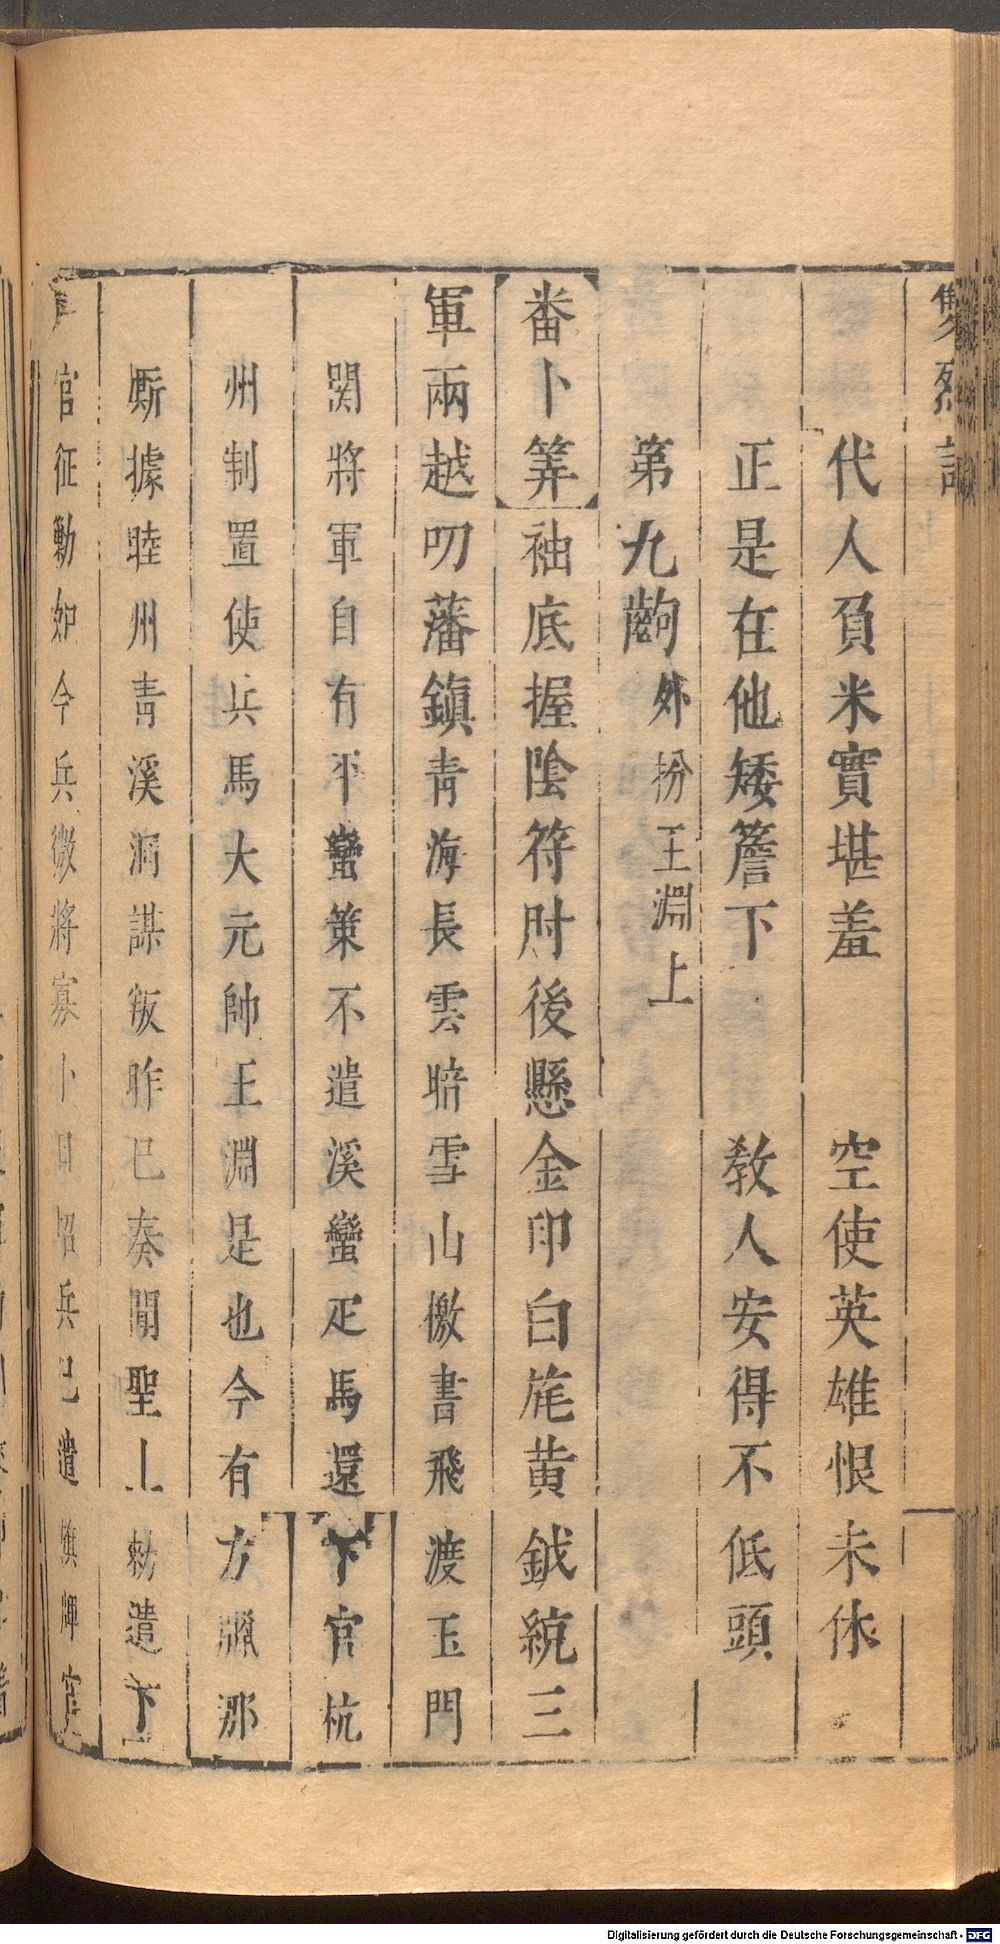 雙烈記
代人負米實堪羞　空使英雄恨未休
正是在他矮簷下　教人安得不低頭
第九齣 外扮王淵上
番卜筭 袖底握陰符肘後懸金印白旄黄鉞統三
軍兩越叨藩鎮青海長雲暗雪山檄書飛渡玉門
関將軍自有平蠻策不遣溪蠻疋馬還下官杭
州制置使兵馬大元帥王淵是也今有方臘那
厮據睦州青溪洞謀叛昨已奏聞聖上勅遣下
官征勦如今兵微將寡卜日招兵已遣旗牌官
Digitalisierung gefördert durch die Deutsche Forschungsgemeinschaft - DFG